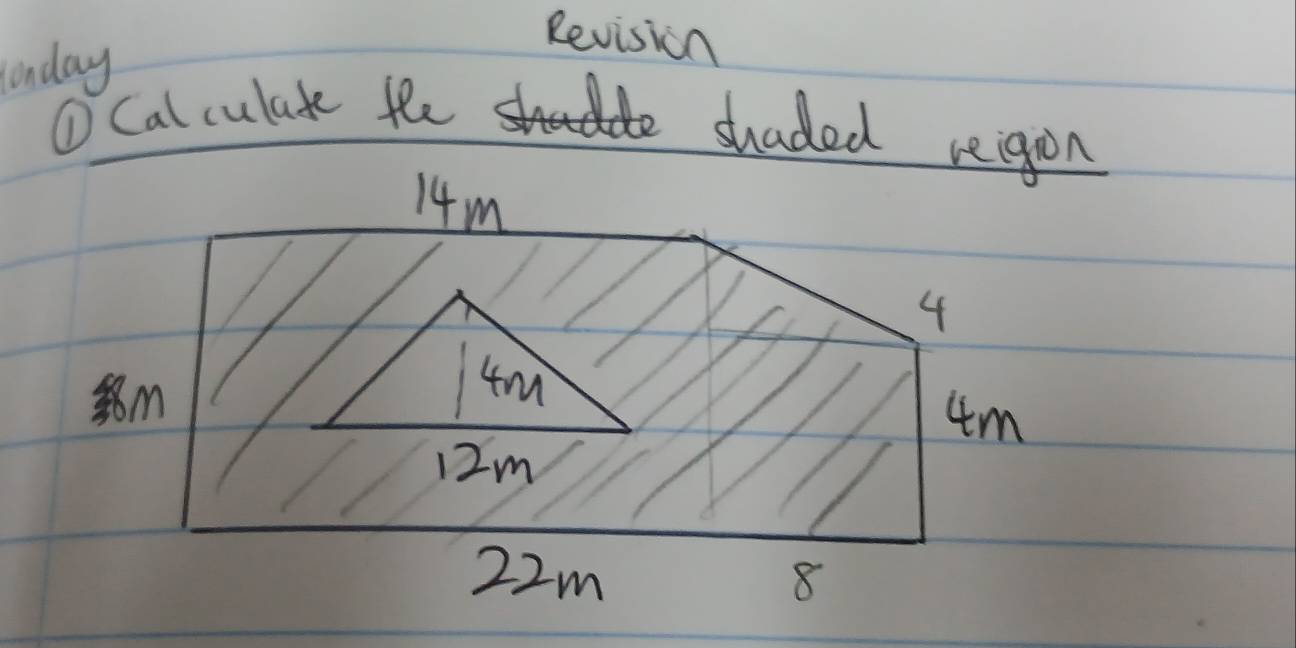 Revision
① Calculate the shaded reigion
14m
4
8m
4m
4m
12m
22m
8